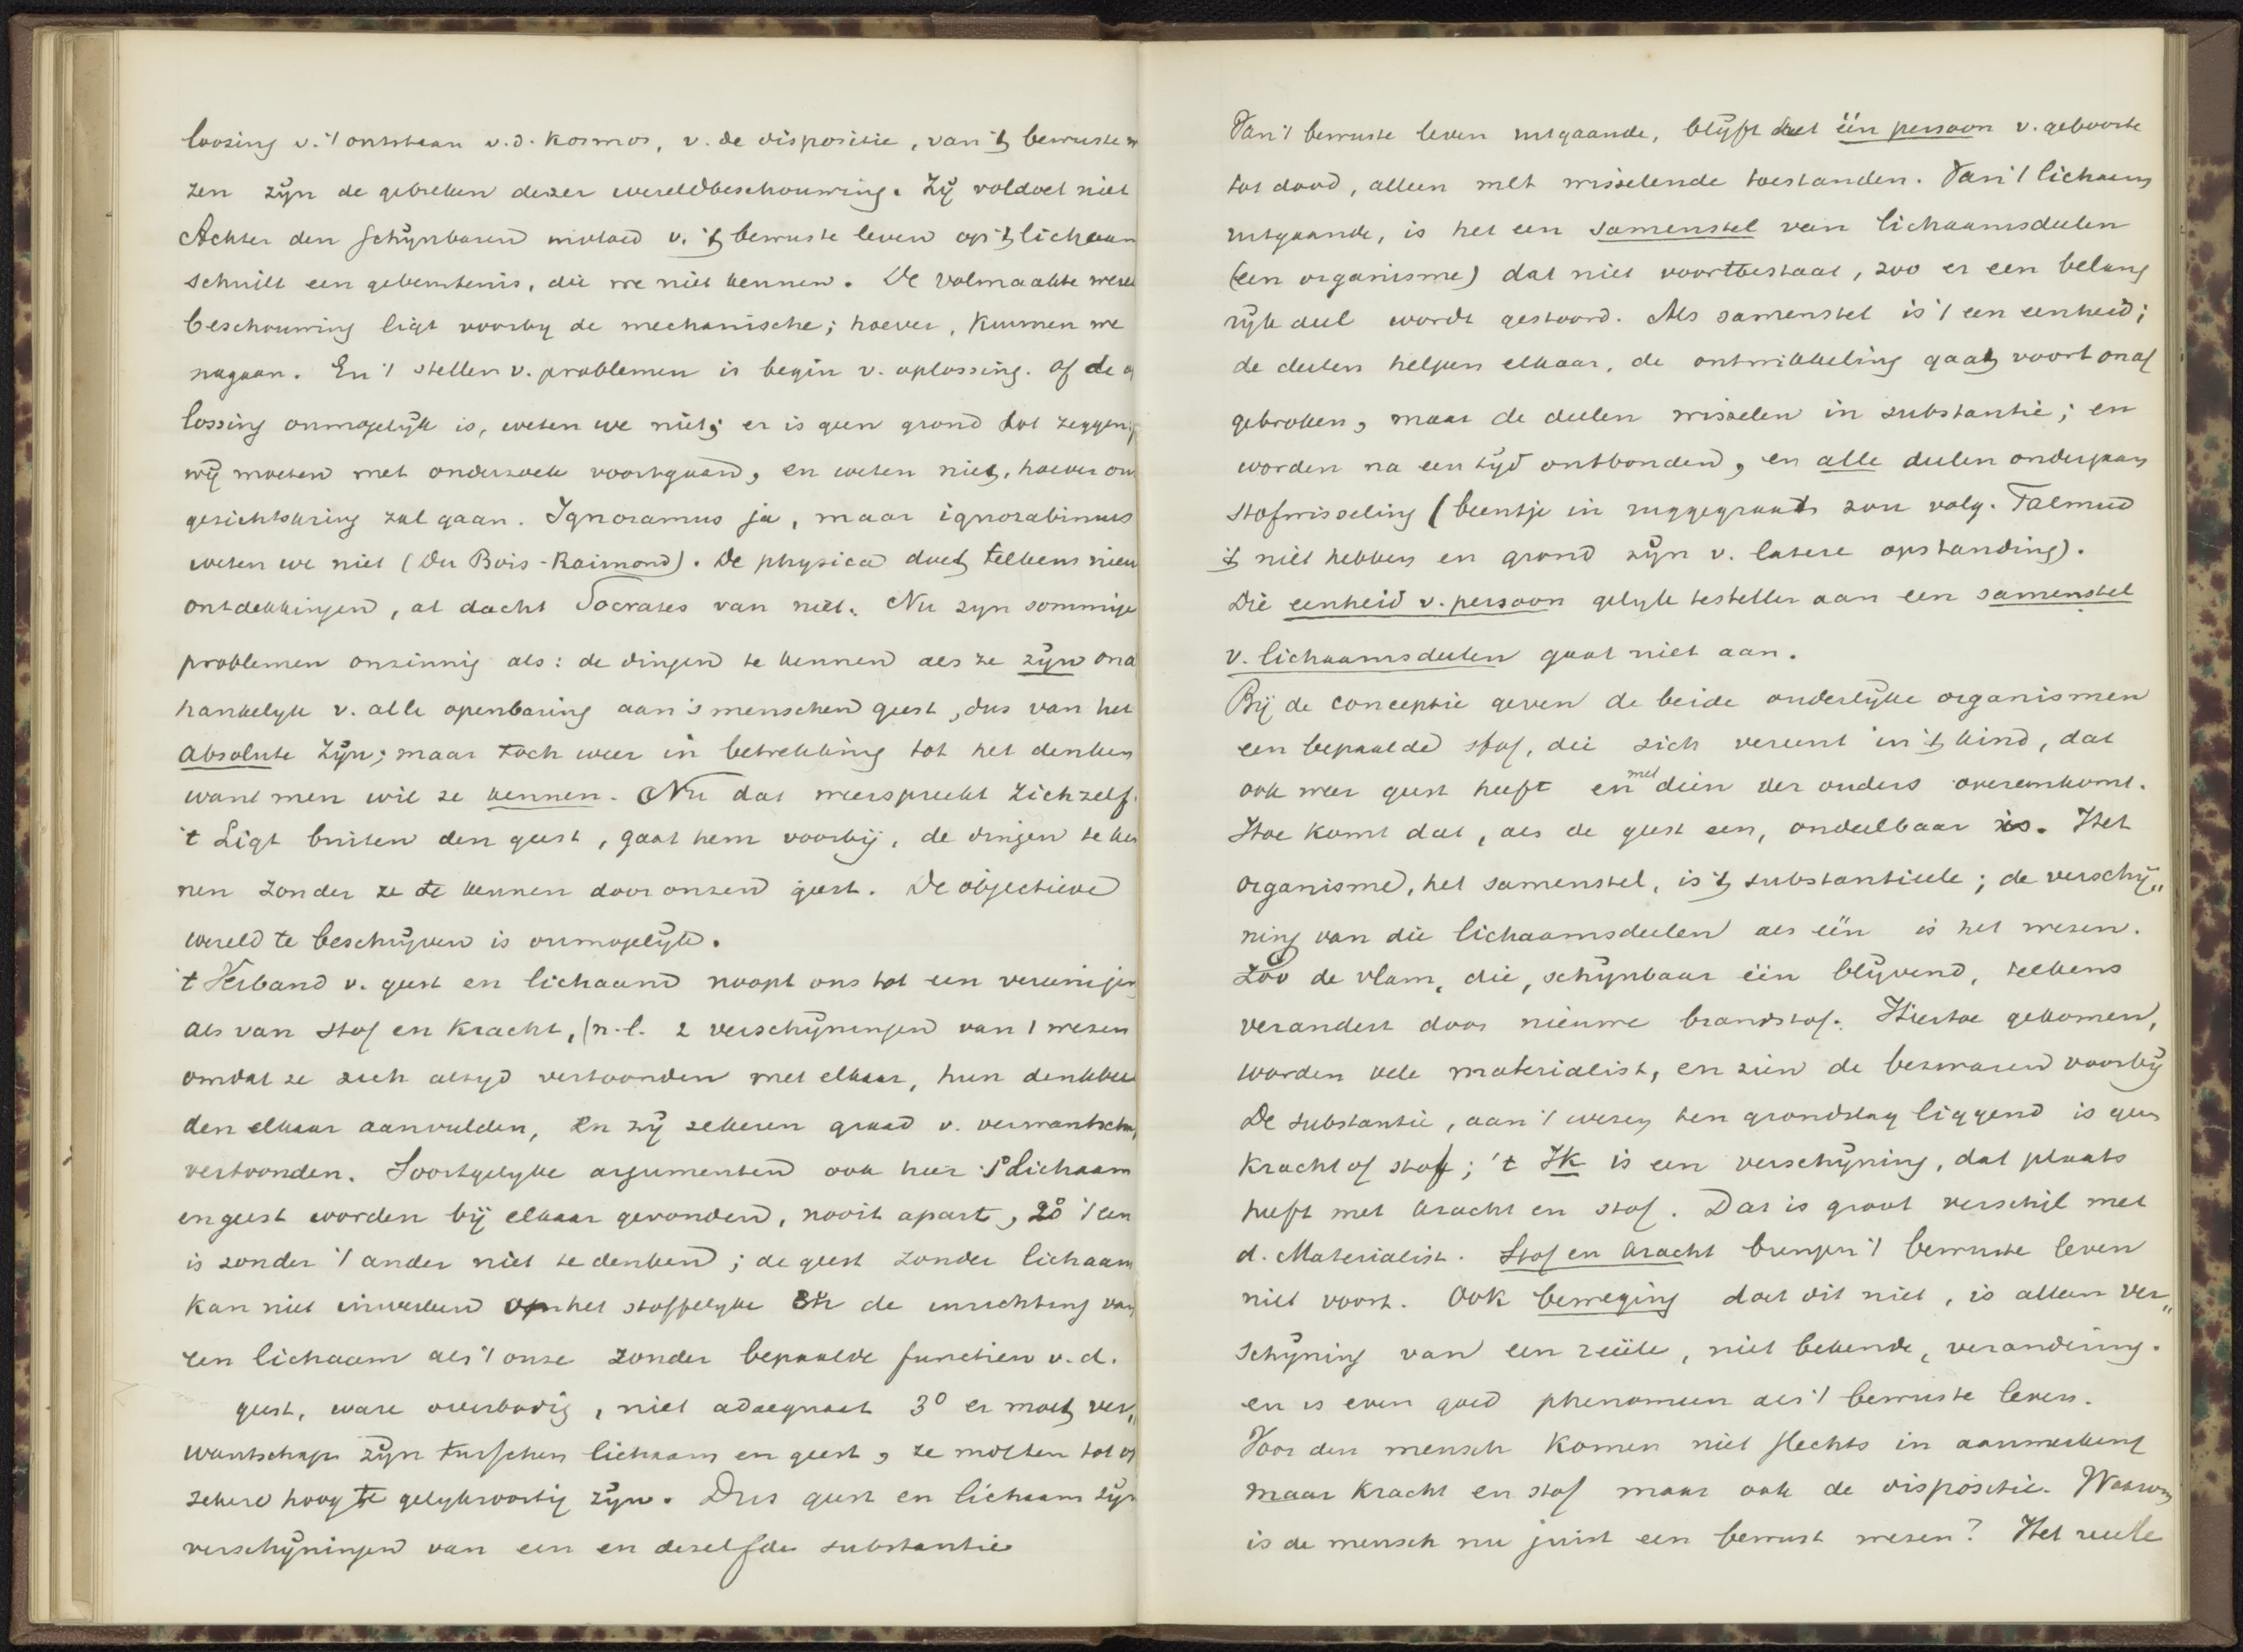 loozing v. 't ontstaan v.d. Kosmos, v. de dispositie, van 't bewuste
zen zijn de gebreken dezer wereldbeschouwing. Zij voldoet niet
Achter den schijnbaren invloed v. 't bewuste leven op 't lichaam
schuilt een gebeurtenis, die we niet kennen. De volmaakte wereld
beschouwing ligt voorby de mechanische; hoever, Kunnen we
nagaan. En 't stellen v. problemen is begin v. oplossing. Of de op
lossing onmogelijk is, weten we niet; er is geen grond tot zeggen;
wij moeten met onderzoek voortgaan, en weten niet, hoever ons
gezichtskring zal gaan. Ignoramus ja, maar ignorabimus
weten we niet (Du Bois-Raimond). De physica doet telkens nieu
ontdekkingen, al dacht Socrates van niet. Nu zyn sommige
problemen onzinnig als: de dingen te kennen als ze zijn ona
hankelyk v. alle openbaring aan 's menschen geest, dus van het
absolute zijn; maar toch weer in betrekking tot het denken
want men wil ze kennen. Nu dat weerspreekt zichzelf.
't Ligt buiten den geest, gaat hem voorbij, de dingen te ken
nen zonder ze te kennen door onzen geest. De objectieve
wereld te beschrijven is onmogelijk.
't Verband v. geest en lichaam noopt ons tot een vereeniging
als van stof en Kracht, (n.l. 2 verschijningen van 1 wezen
omdat ze zich altyd vertoonden met elkaar, hun denkbeel
den elkaar aanvulden, en zij zekeren graad v. verwantschap
vertoonden. Soortgelyke argumenten ook hier 1° Lichaam
en geest worden bij elkaar gevonden, nooit apart, 2° 't een
is zonder 't ander niet te denken; de geest zonder lichaam
kan niet inwerken op het stoffelyke en de inrichting van
een lichaam als 't onze zonder bepaalde functien v.d.
geest, ware overbodig, niet adaequaat 3° er moet ver„
wantschap zijn tusschen lichaam en geest, ze moeten tot op
zekere hoogte gelyksoortig zijn. Dus geest en lichaam zijn
verschijningen van een en dezelfde substantie
Van 't bewuste leven uitgaande, blijft het één persoon v. geboorte
tot dood, alleen met wisselende toestanden. Van 't lichaam
uitgaande, is het een samenstel van lichaamsdeelen
(een organisme) dat niet voortbestaat, zoo er een belang
rijk deel wordt gestoord. Als samenstel is 't een eenheid;
de deelen helpen elkaar, de ontwikkeling gaat voort onaf
gebroken, maar de deelen wisselen in substantie; en
worden na een tijd ontbonden, en alle deelen ondergaan
stofwisseling (beentje in ruggegraat zou volg. Talmud
't niet hebben en grond zijn v. latere opstanding).
Die eenheid v. persoon gelyk te stellen aan een samenstel
v. lichaamsdeelen gaat niet aan.
Bij de conceptie geven de beide ouderlijke organismen
een bepaalde stof, die zich vereent in 't kind, dat
ook weer geest heeft en met dien der ouders overeenkomt.
Hoe komt dat, als de geest een, ondeelbaar is. Het
organisme, het samenstel, is 't substantieele; de verschij„
ning van die lichaamsdeelen als één is het wezen.
Zoo de vlam, die, schijnbaar één blijvend, telkens
verandert door nieuwe brandstof. Hiertoe gekomen,
worden vele materialist, en zien de bezwaren voorbij
De substantie, aan 't wezen ten grondslag liggend is geen
Kracht of stof; 't Ik is een verschijning, dat plaats
heeft met kracht en stof. Dat is groot verschil met
d. Materialist. Stof en kracht brengen 't bewuste leven
niet voort. Ook beweging doet dit niet, is alleen ver„
schijning van een reëele, niet bekende, verandering.
en is even goed phenomeen als 't bewuste leven.
Voor den mensch komen niet slechts in aanmerking
maar Kracht en stof maar ook de dispositie. Waarom
is de mensch nu juist een bewust wezen? Het reëele